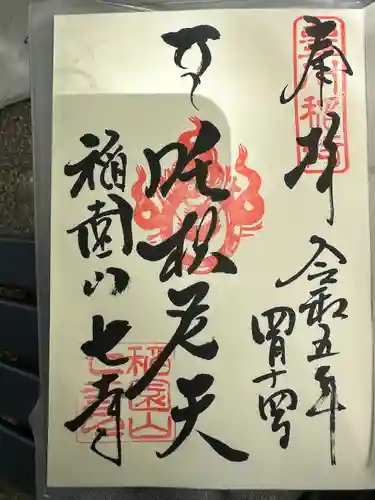 奉拝
豊川稲荷
令和五年
四月十四日
吒枳尼天
稲園山 七寺
稲園山
七寺